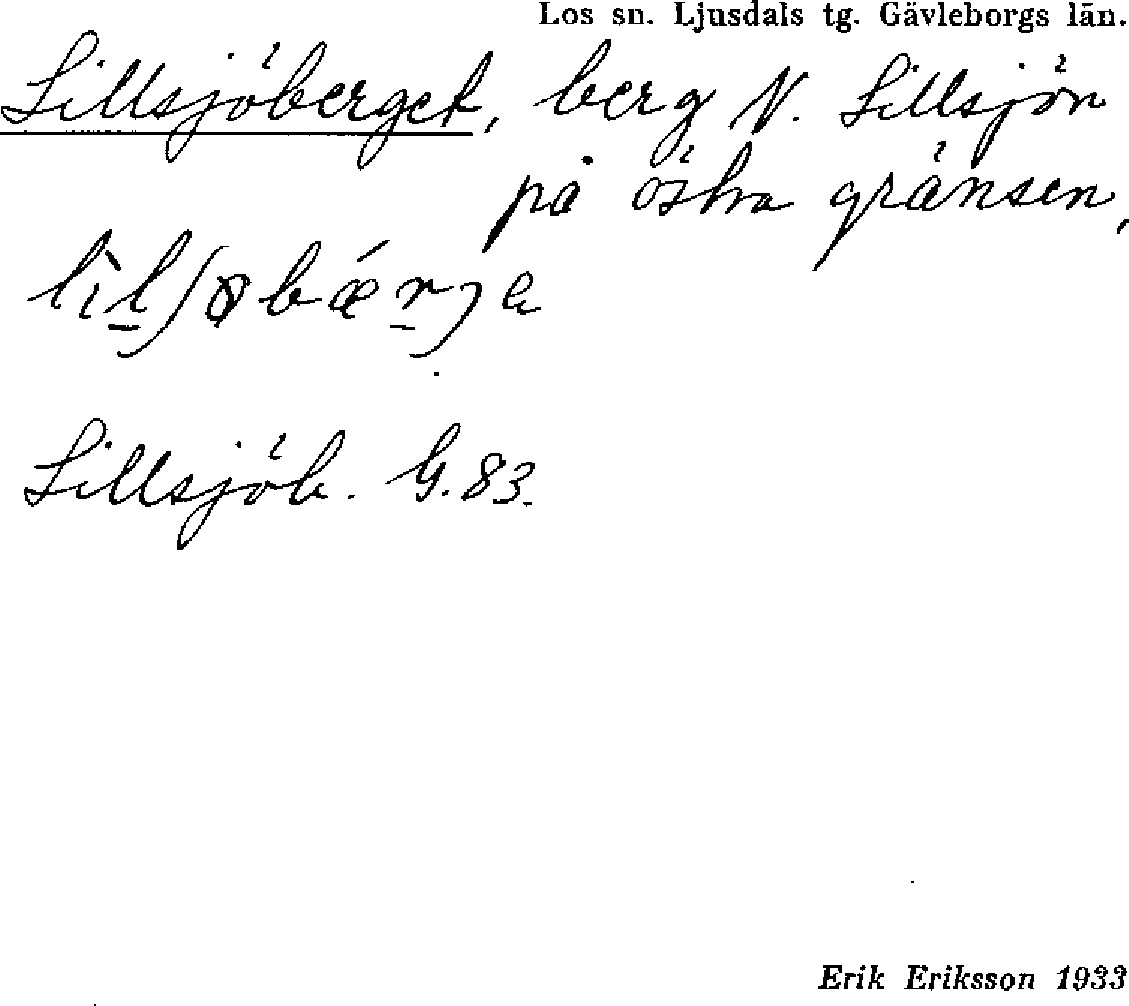 Los sn. Ljusdals tg. Gävleborgs län.
Lillsjöberget, berg N. Lillsjön
på östra gränsen,
Lillsjöb. G. 83.
Erik Eriksson 1933